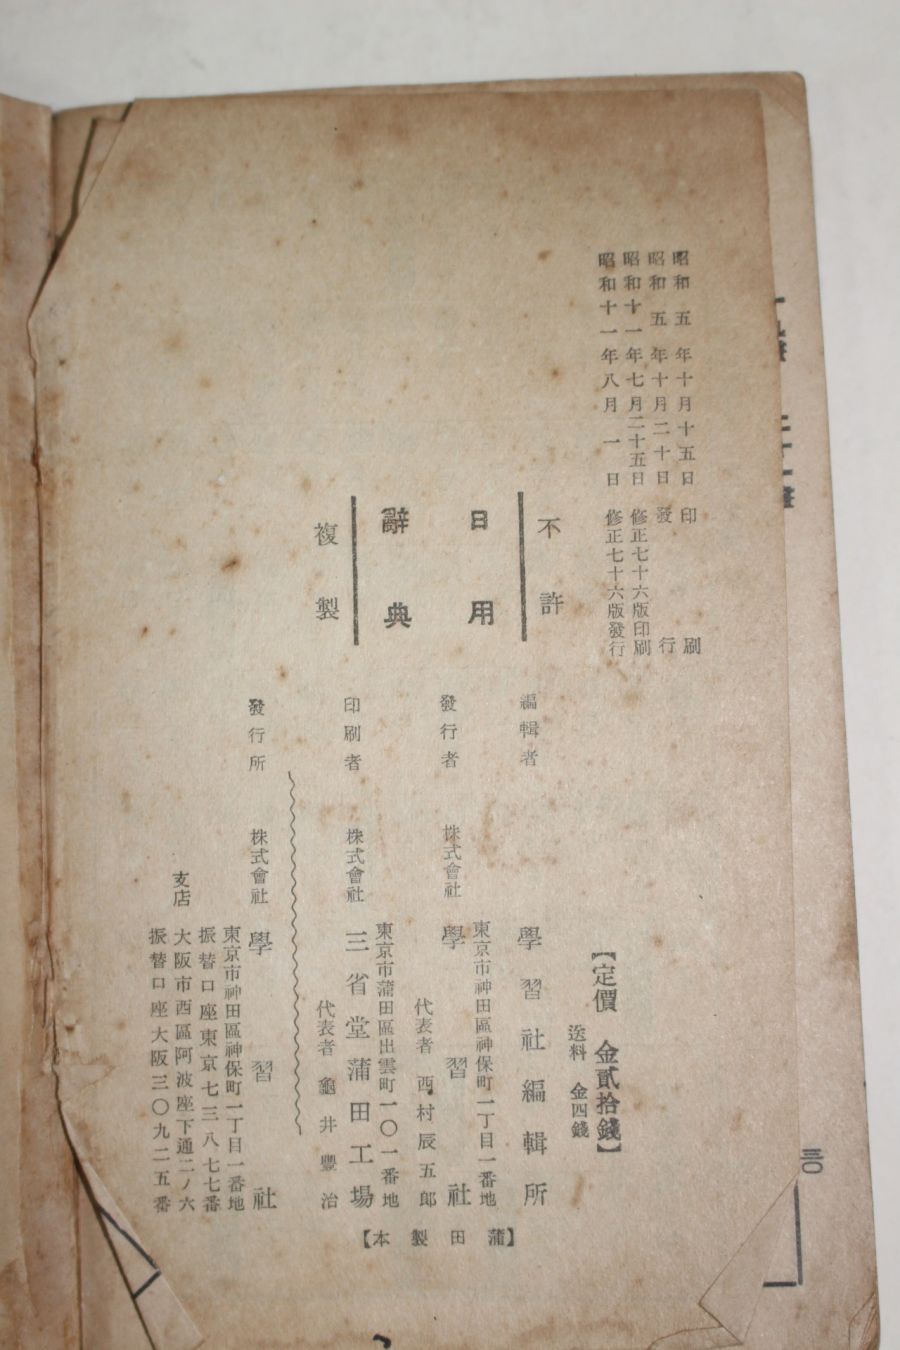 昭和五年十月十五日 印刷
昭和五年十月二十日 發行
昭和十一年七月二十五日 修正七十六版印刷
昭和十一年八月一日 修正七十六版發行
不許
複製
日用
辭典
【定價 金貳拾錢】
送料 金四錢
編輯者 學習社編輯所
東京市神田區神保町一丁目一番地
發行者 株式會社 學習社
代表者 西村辰五郎
東京市蒲田區出雲町一〇一番地
印刷者 株式會社 三省堂蒲田工場
代表者 龜井豐治
發行所 株式會社 學習社
東京市神田區神保町一丁目一番地
振替口座東京七三八七七番
支店 大阪市西區阿波座下通二ノ六
振替口座大阪三〇九二五番
【本製田蒲】
三〇